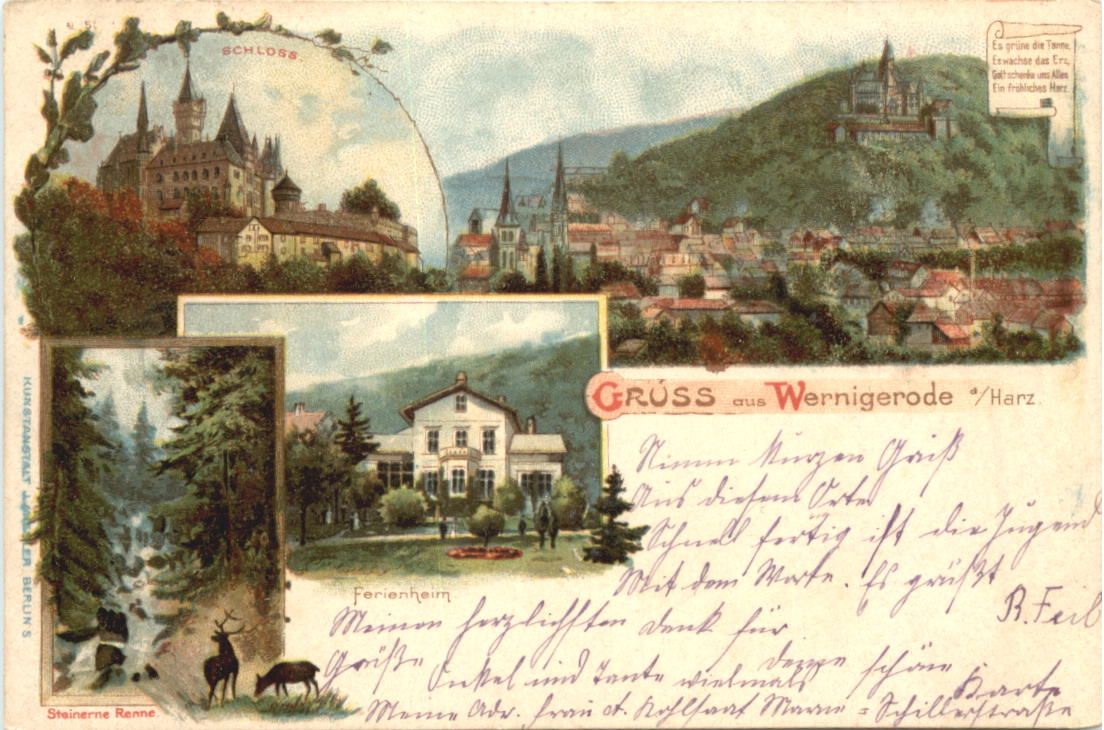 SCHLOSS.
Es grüne die Tanne,
Es wachse das Erz,
Gott schenke uns Allen
Ein fröhliches Harz.
GRUSS aus Wernigerode a/Harz.
Nimm kurzen Gruß
Aus diesem Orte
Schnell fertig ist die Jugend
Mit dem Worte. Es grüßt
R. Feil
Ferienheim
Meinen herzlichsten Dank für
Grüße Onkel und Tante vielmals schöne
Karte
Meine Adr. Frau A. Kohlsaat Schillerstraße
Steinerne Renne.
KUNSTANSTALT BERLIN S